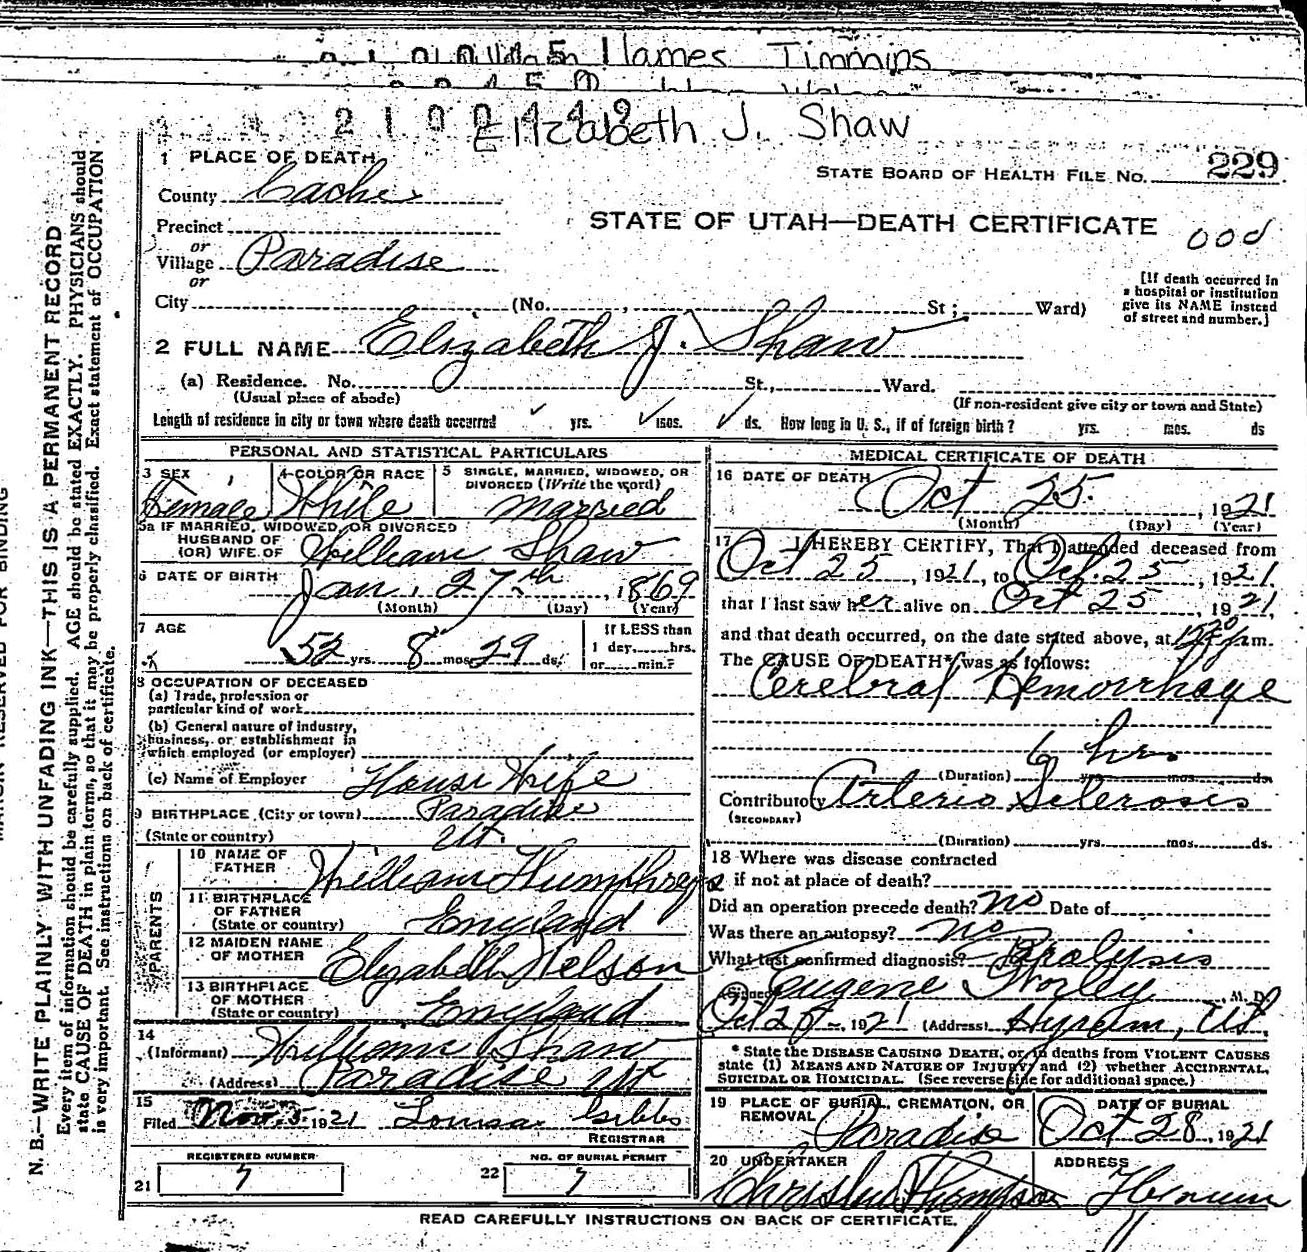 James Timmins
Elizabeth J. Shaw
1 PLACE OF DEATH
STATE BOARD OF HEALTH FILE NO. 229
County Cache
STATE OF UTAH—DEATH CERTIFICATE
Precinct
or
Village Paradise
or
[If death occurred in
a hospital or institution
give its NAME instead
of street and number.]
City (No. St; Ward)
2 FULL NAME Elizabeth J. Shaw
(a) Residence. No. St., Ward.
(Usual place of abode)
(If non-resident give city or town and State)
Length of residence in city or town where death occurred yrs. mos. ds. How long in U. S., if of foreign birth? yrs. mos. ds
PERSONAL AND STATISTICAL PARTICULARS
3 SEX
Female
4 COLOR OR RACE
White
5 SINGLE, MARRIED, WIDOWED, OR
DIVORCED (Write the word)
married
5a IF MARRIED, WIDOWED, OR DIVORCED
HUSBAND OF
(OR) WIFE OF William Shaw
6 DATE OF BIRTH Jan. 27th, 1869
(Month) (Day) (Year)
7 AGE
52 yrs 8 mos 29 ds.
If LESS than
1 day hrs.
or min.?
8 OCCUPATION OF DECEASED
(a) Trade, profession or
particular kind of work
(b) General nature of industry,
business, or establishment in
which employed (or employer)
(c) Name of Employer House Wife
9 BIRTHPLACE (City or town) Paradise
(State or country) Ut.
PARENTS
10 NAME OF
FATHER William Humphreys
11 BIRTHPLACE
OF FATHER
(State or country) England
12 MAIDEN NAME
OF MOTHER Elizabeth Nelson
13 BIRTHPLACE
OF MOTHER
(State or country) England
14
(Informant) William Shaw
(Address) Paradise Ut
15
Filed Nov. 5 1921 Louisa Gibbs
REGISTRAR
REGISTERED NUMBER
21 7
NO. OF BURIAL PERMIT
22 7
MEDICAL CERTIFICATE OF DEATH
16 DATE OF DEATH
Oct 25, 1921
(Month) (Day) (Year)
17 I HEREBY CERTIFY, That I attended deceased from
Oct 25, 1921, to Oct. 25, 1921
that I last saw her alive on Oct 25 1921,
and that death occurred, on the date stated above, at m.
The CAUSE OF DEATH* was as follows:
Cerebral Hemorrhage
6 hrs
(Duration) yrs mos. ds.
Contributory Arterio Sclerosis
(SECONDARY)
(Duration) yrs. mos. ds.
18 Where was disease contracted
if not at place of death?
Did an operation precede death? no Date of
Was there an autopsy? no
What test confirmed diagnosis? Paralysis
(Signed) Eugene Worley, M. D.
1921 (Address) Hyrum, Ut.
* State the DISEASE CAUSING DEATH, or, in deaths from VIOLENT CAUSES
state (1) MEANS AND NATURE OF INJURY; and (2) whether ACCIDENTAL,
SUICIDAL OR HOMICIDAL. (See reverse side for additional space.)
19 PLACE OF BURIAL, CREMATION, OR
REMOVAL Paradise
DATE OF BURIAL
Oct 28, 1921
20 UNDERTAKER
Thompson
ADDRESS
READ CAREFULLY INSTRUCTIONS ON BACK OF CERTIFICATE.
N. B.—WRITE PLAINLY WITH UNFADING INK—THIS IS A PERMANENT RECORD
Every item of information should be carefully supplied. AGE should be stated EXACTLY. PHYSICIANS should
state CAUSE OF DEATH in plain terms, so that it may be properly classified. Exact statement of OCCUPATION
is very important. See instructions on back of certificate.
RESERVED FOR BINDING